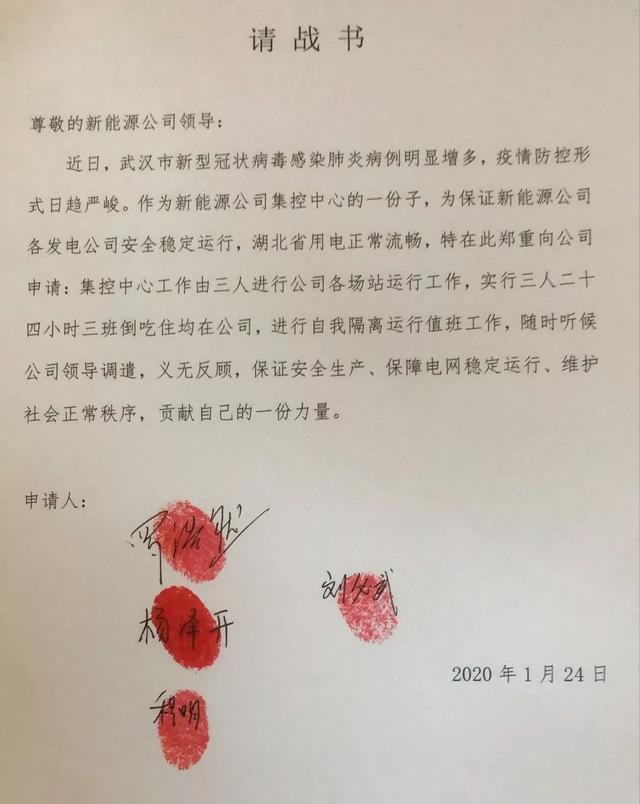 请战书
尊敬的新能源公司领导：
近日，武汉市新型冠状病毒感染肺炎病例明显增多，疫情防控形
式日趋严峻。作为新能源公司集控中心的一份子，为保证新能源公司
各发电公司安全稳定运行，湖北省用电正常流畅，特在此郑重向公司
申请：集控中心工作由三人进行公司各场站运行工作，实行三人二十
四小时三班倒吃住均在公司，进行自我隔离运行值班工作，随时听候
公司领导调遣，义无反顾，保证安全生产、保障电网稳定运行、维护
社会正常秩序，贡献自己的一份力量。
申请人：
杨泽开
程明
2020年1月24日